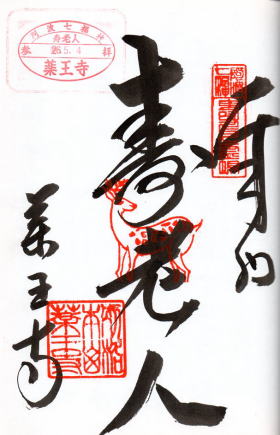 阿波七福神
寿老人
参 26.5.4 拝
薬王寺
奉拝
壽老人
薬王寺